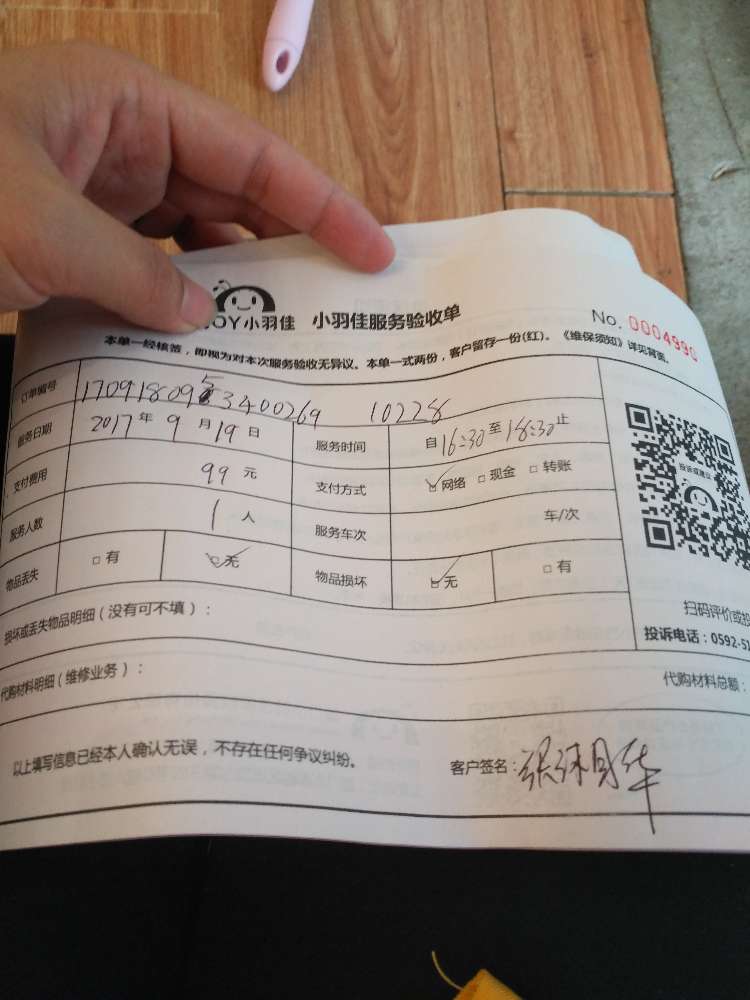 JOY小羽佳 小羽佳服务验收单 No. 0004990
本单一经核签，即视为对本次服务验收无异议。本单一式两份，客户留存一份(红)。《维保须知》详见背面。
订单编号 1709180953400269 10228
服务日期 2017年9月19日 服务时间 自16:30至18:30止
支付费用 99元 支付方式 网络 现金 转账
投诉或建议
服务人数 1人 服务车次 车/次
物品丢失 有 无 物品损坏 无 有
扫码评价或投
损坏或丢失物品明细（没有可不填）：
投诉电话：0592-51
代购材料明细（维修业务）： 代购材料总额：
以上填写信息已经本人确认无误，不存在任何争议纠纷。 客户签名：